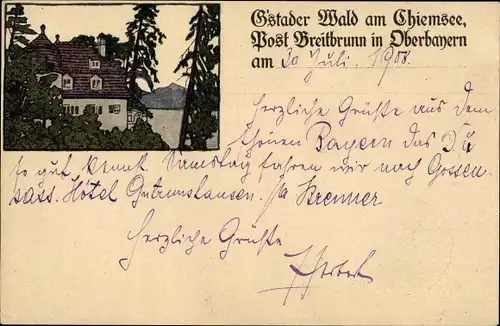 G'stader Wald am Chiemsee,
Post Breitbrunn in Oberbayern
am 20 Juli. 1908.
Herzliche Grüße aus dem
schönen Bayern das Du
so gut kennst. Samstag fahren wir nach Gossen-
sass. Hôtel Brenner
Herzliche Grüße
Herbert